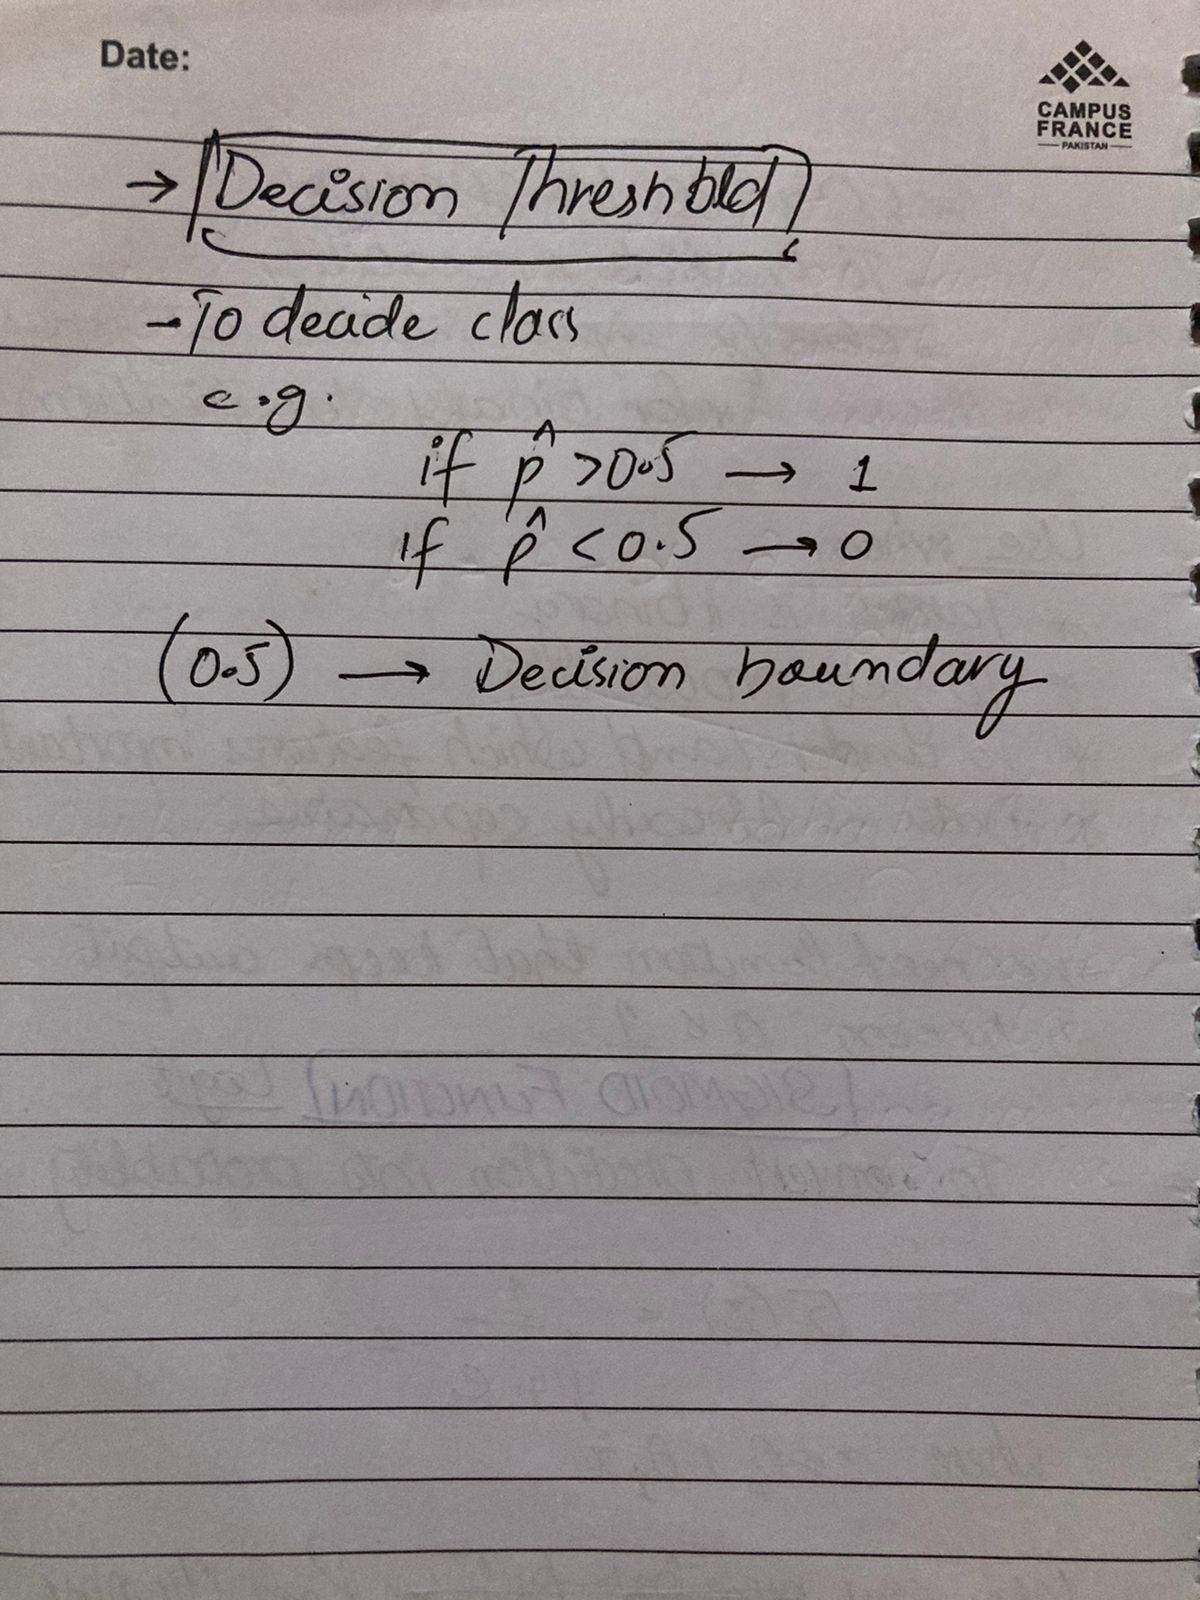 Date:
CAMPUS
FRANCE
PAKISTAN
→ Decision Threshold
- To decide class
e.g.
if p̂ >0.5 → 1
if p̂ <0.5 → 0
(0.5) → Decision boundary